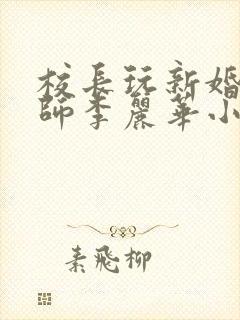 校長玩新婚
師李麗華小
素飛柳